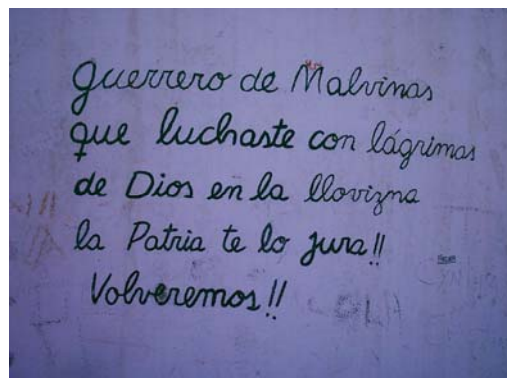 Guerrero de Malvinas
que luchaste con lágrimas
de Dios en la llovizna
la Patria te lo jura!!
Volveremos!!